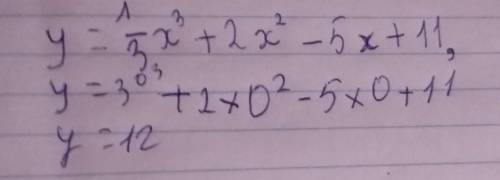 y = 1/3 x³ + 2x² - 5x + 11,
y = 3^0^3 + 2×0² - 5×0 + 11
y = 12